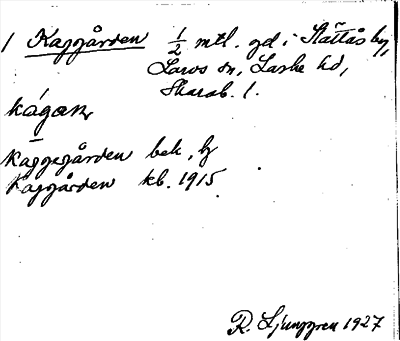 1 Kaggården 1/2 mtl. gd i Slättås by,
Larvs sn, Laske hd,
Skarab. l.
kágan
Kaggegården bek. bf
Kaggården kb. 1915
R. Ljunggren 1927